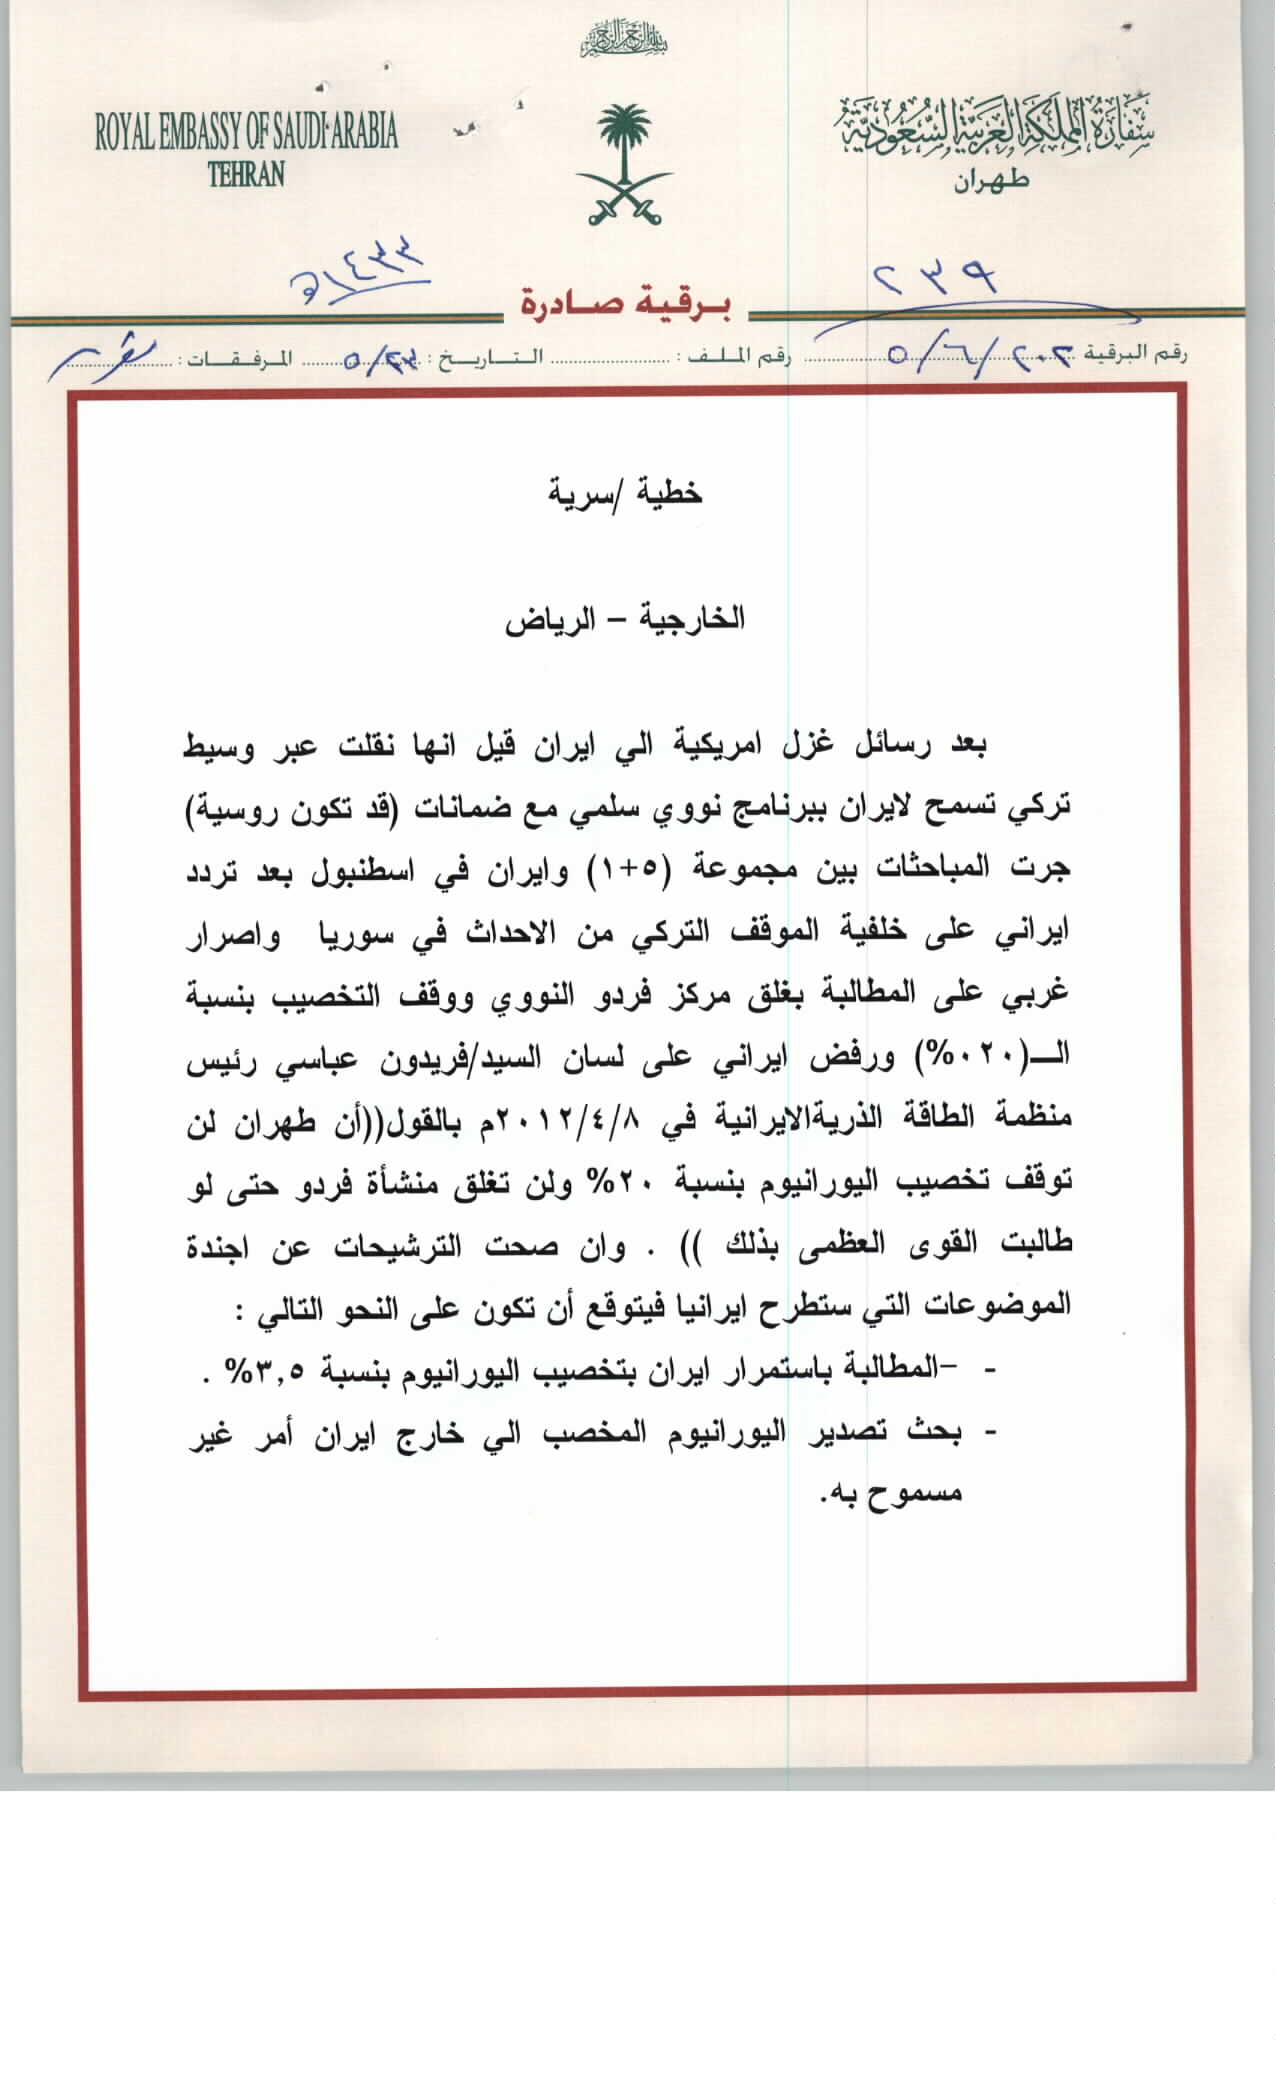 بسم الله الرحمن الرحيم
ROYAL EMBASSY OF SAUDI ARABIA
TEHRAN
سفارة المملكة العربية السعودية
طهران
٢٣٩
١٤٣٣هـ
برقية صادرة
رقم البرقية ٥/٦/٢٠٢ رقم الملف : التاريخ : ٥/٢٣ المرفقات :
خطية /سرية
الخارجية – الرياض
بعد رسائل غزل امريكية الي ايران قيل انها نقلت عبر وسيط
تركي تسمح لايران ببرنامج نووي سلمي مع ضمانات (قد تكون روسية)
جرت المباحثات بين مجموعة (٥+١) وايران في اسطنبول بعد تردد
ايراني على خلفية الموقف التركي من الاحداث في سوريا واصرار
غربي على المطالبة بغلق مركز فردو النووي ووقف التخصيب بنسبة
الـ(٠٢٠%) ورفض ايراني على لسان السيد/فريدون عباسي رئيس
منظمة الطاقة الذريةالايرانية في ٢٠١٢/٤/٨م بالقول((أن طهران لن
توقف تخصيب اليورانيوم بنسبة ٢٠% ولن تغلق منشأة فردو حتى لو
طالبت القوى العظمى بذلك )) . وان صحت الترشيحات عن اجندة
الموضوعات التي ستطرح ايرانيا فيتوقع أن تكون على النحو التالي :
- –المطالبة باستمرار ايران بتخصيب اليورانيوم بنسبة ٣,٥% .
- بحث تصدير اليورانيوم المخصب الي خارج ايران أمر غير
مسموح به.